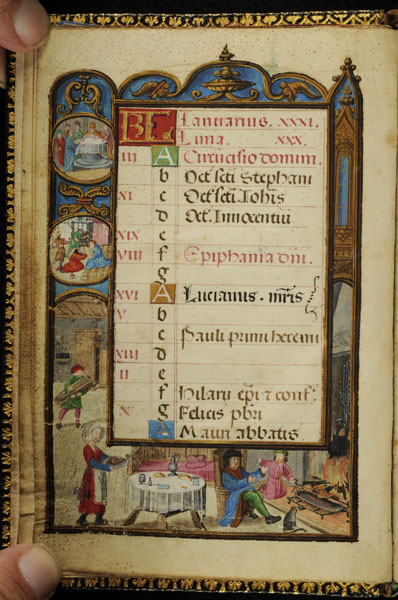 KL Ianuarius. XXXI.
Luna. XXX.
III A Circūcisio domini.
b Oct. scti Stephani
XI c Oct. scti Iohīs
d Oct. Innocentiū
XIX e
VIII f Epiphania dni.
g
XVI A Lucianus. mr̄is
V b
c Pauli primi heremi
XIII d
II e
f Hilarii epi et conf.
X g Felicis pbri
A Mauri abbatis.